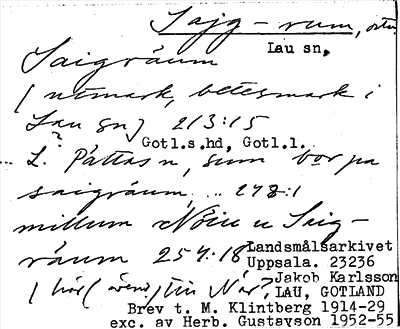 Sajg-rum, ortn
Lau sn.
Saigräum
(utmark, betesmark i
Lau sn) 213:15
Gotl.s.hd, Gotl.l.
L. Pattas n, sum bor pa
saigräum, .. 278:1
millum Nöiu u Saig-
räum 254:18
Landsmålsarkivet
Uppsala. 23236
Jakob Karlsson
LAU, GOTLAND
( hör ( även) till När?
Brev t. M. Klintberg 1914-29
exc. av Herb. Gustavson 1952-55